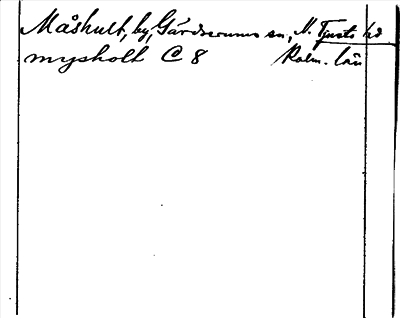 Måshult, by, Gärdserums sn, N. Tjusts hd
mysholt C 8 Kalm. län